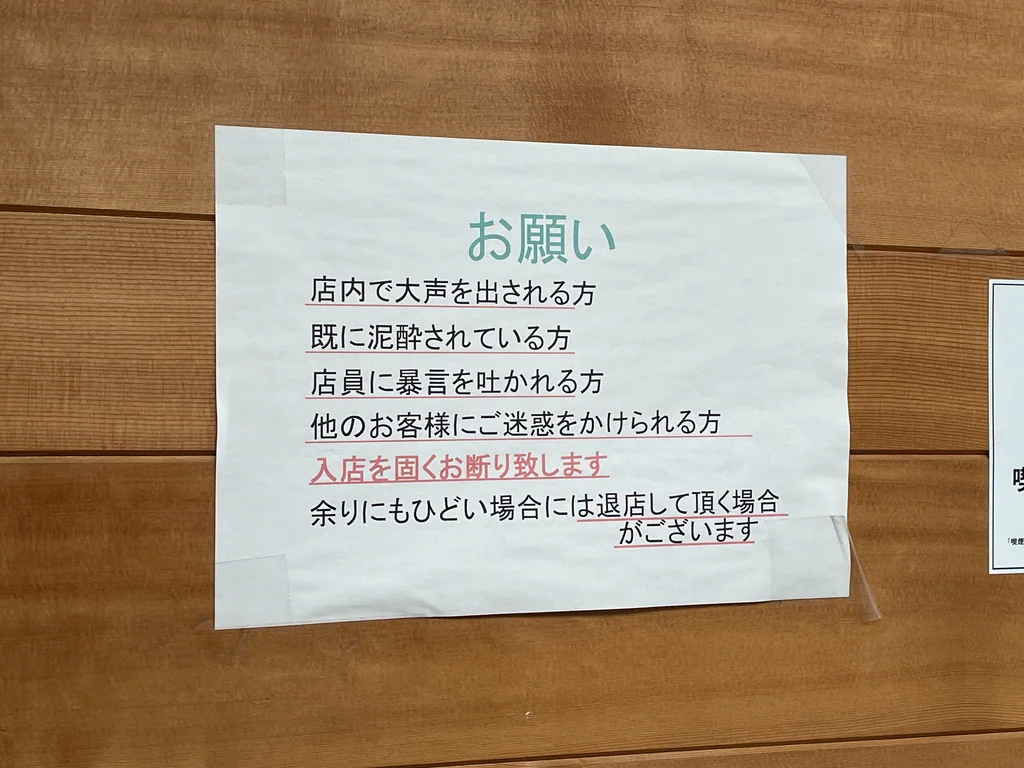 お願い
店内で大声を出される方
既に泥酔されている方
店員に暴言を吐かれる方
他のお客様にご迷惑をかけられる方
入店を固くお断り致します
余りにもひどい場合には退店して頂く場合
がございます
「喫煙